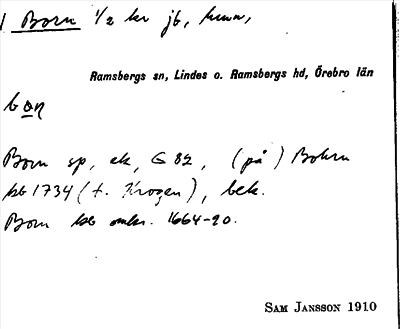 1 Born 1/2 kr jb, krono,
Ramsbergs sn, Lindes o. Ramsbergs hd, Örebro län
bōṇ
Born sp, ek, G 82, (på) Bohrn
kb 1734 (t. Krogen), bek.
Born kb omkr. 1664-90.
SAM JANSSON 1910